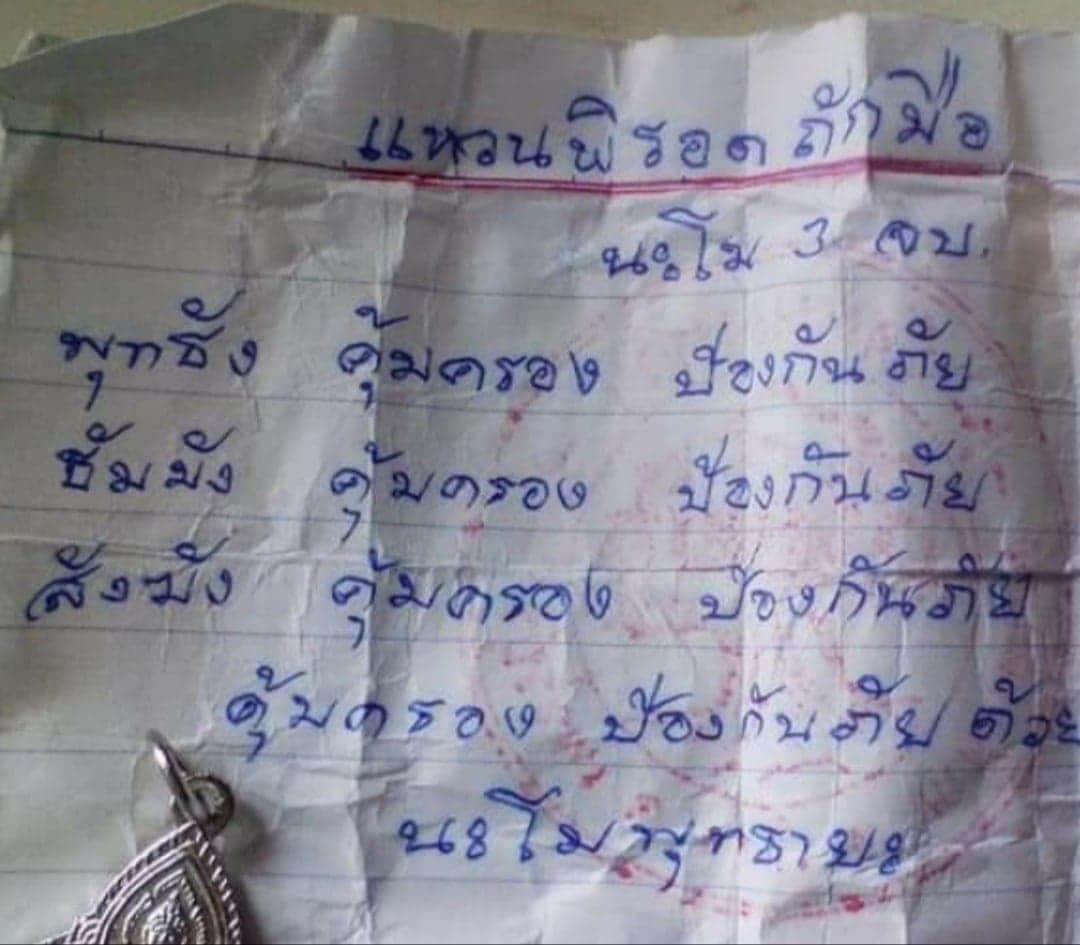 แหวนพิรอดถักมือ
นะโม 3 จบ.
พุทธัง คุ้มครอง ป้องกันภัย
ธัมมัง คุ้มครอง ป้องกันภัย
สังฆัง คุ้มครอง ป้องกันภัย
คุ้มครอง ป้องกันภัย ด้วย
นะโมพุทธายะ